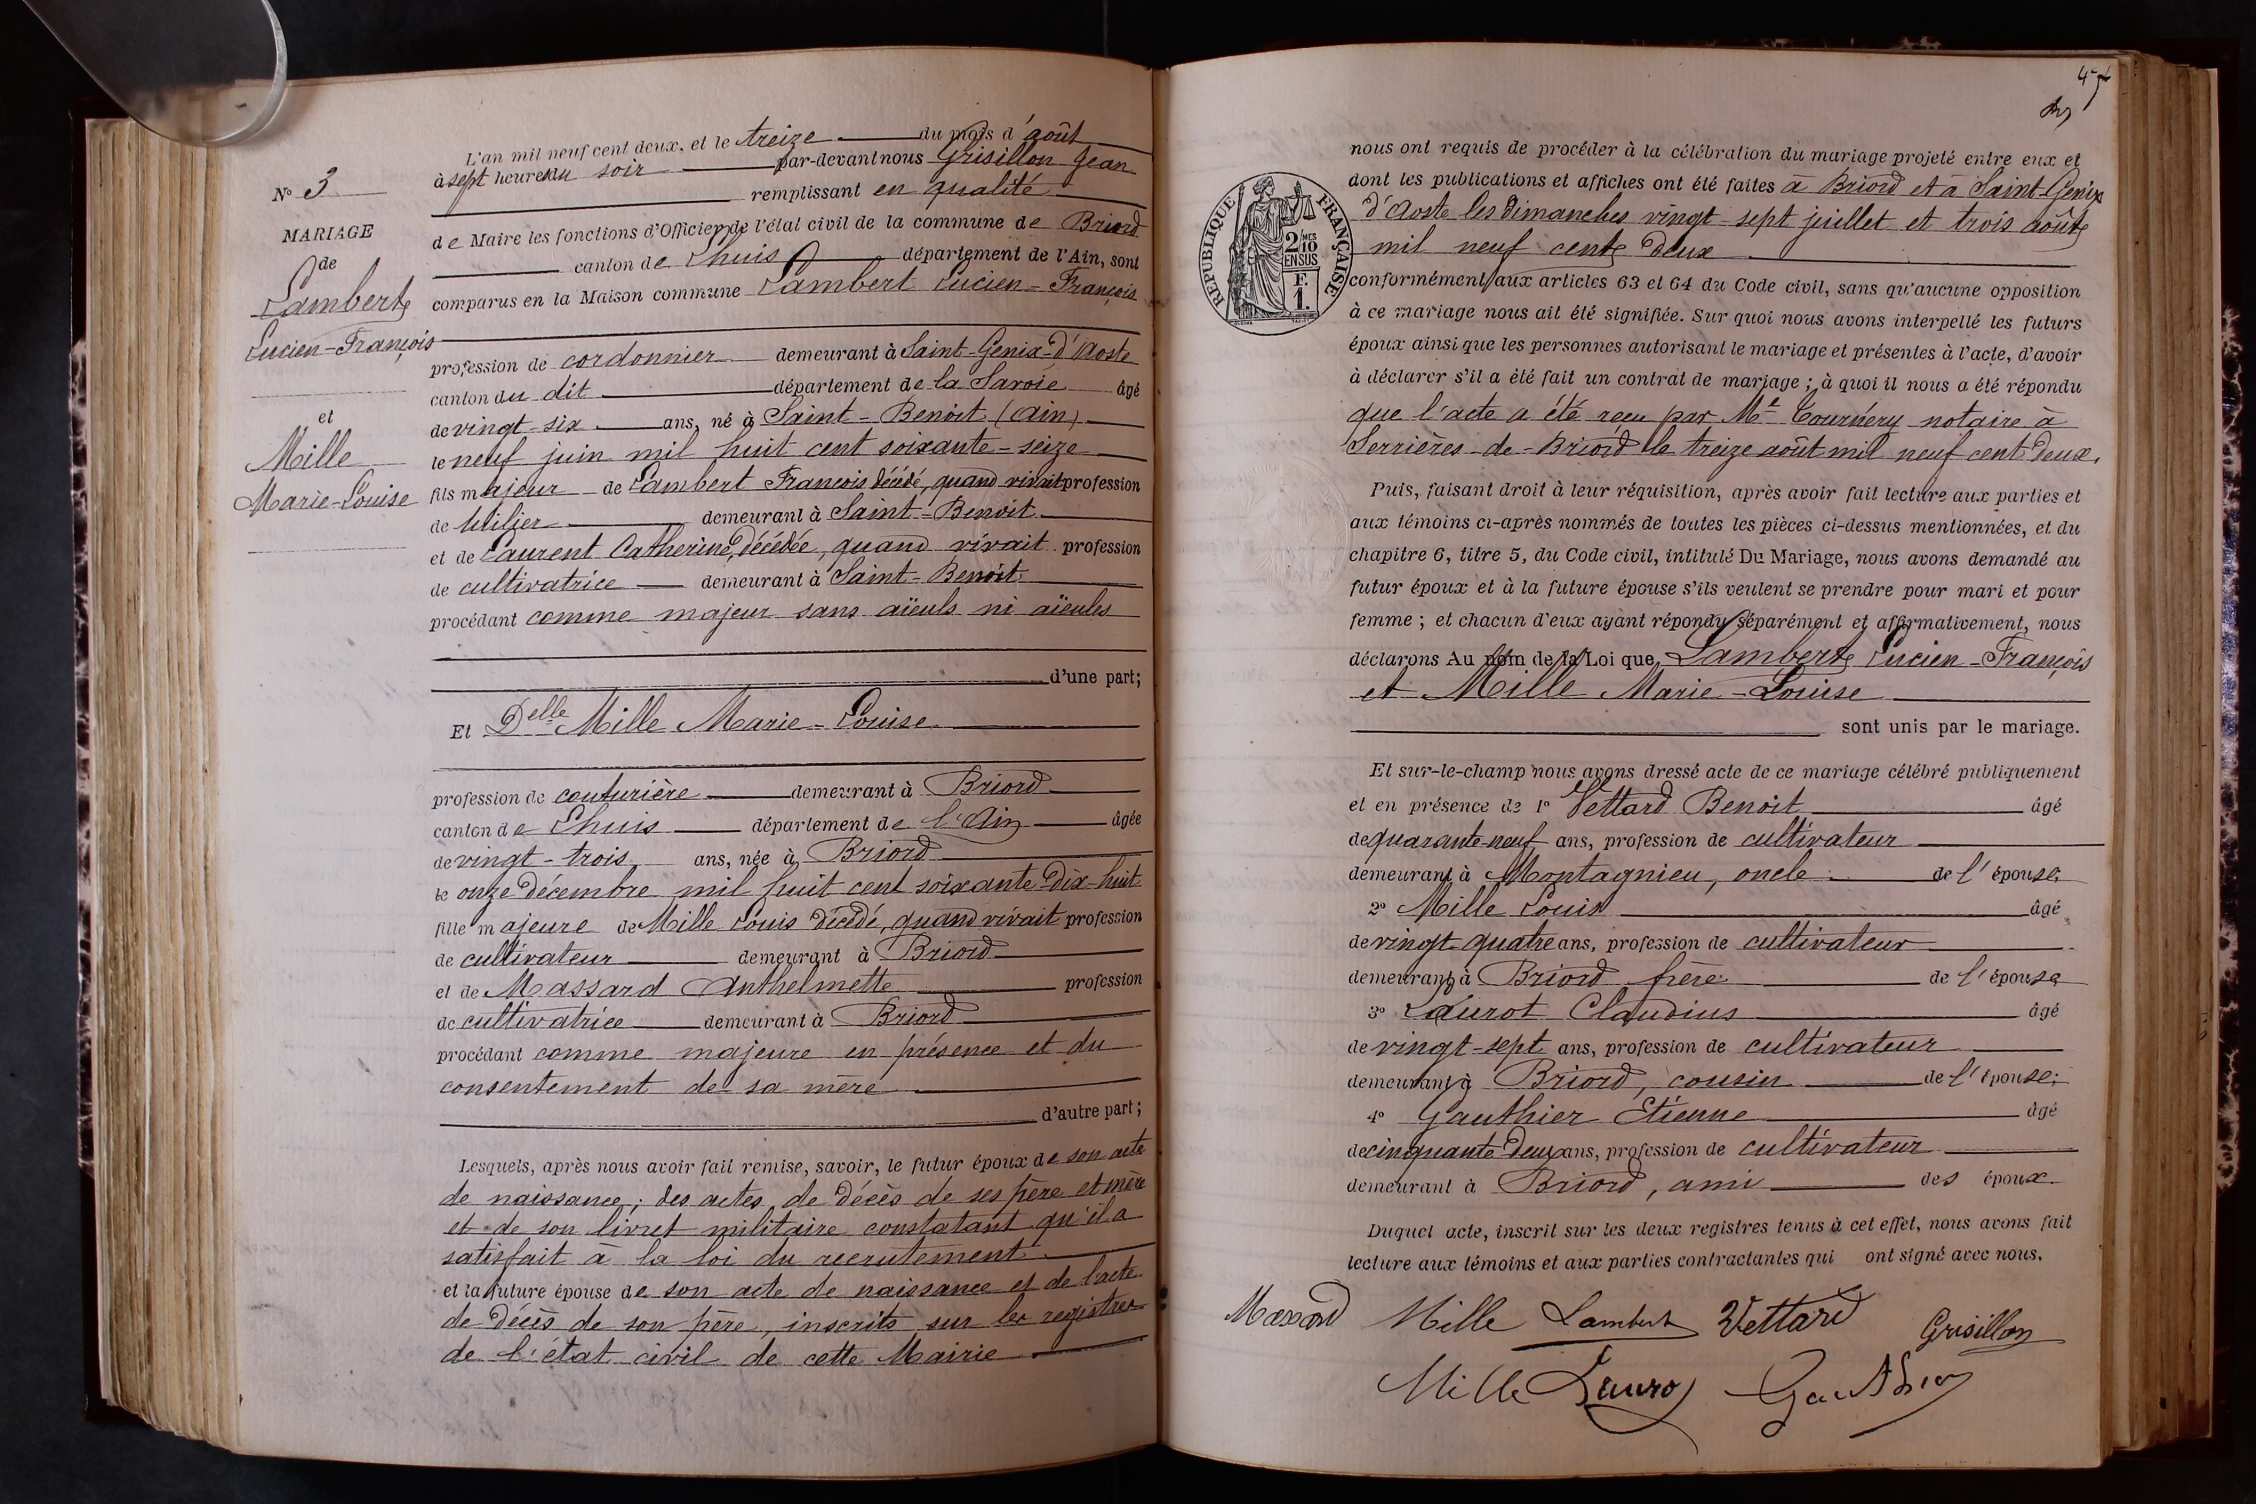 N° 3
MARIAGE
de
Lambert
Lucien-François
et
Mille
Marie-Louise
L'an mil neuf cent deux, et le treize du mois d'août
à sept heures du soir par-devant nous Grisillon Jean
remplissant en qualité
de Maire les fonctions d'Officier de l'état civil de la commune de Briord
canton de Lhuis département de l'Ain, sont
comparus en la Maison commune Lambert Lucien-François
profession de cordonnier demeurant à Saint-Genix-d'Aoste
canton du dit département de la Savoie âgé
de vingt-six ans, né à Saint-Benoit (Ain)
le neuf juin mil huit cent soixante-seize
fils majeur de Lambert François décédé, quand vivait profession
de demeurant à Saint-Benoit
et de Laurent Catherine, décédée, quand vivait profession
de cultivatrice demeurant à Saint-Benoit
procédant comme majeur sans aïeuls ni aïeules
d'une part;
Et Delle Mille Marie-Louise
profession de couturière demeurant à Briord
canton de Lhuis département de l'Ain âgée
de vingt-trois ans, née à Briord
le onze Décembre mil huit cent soixante Dix-huit
fille majeure de Mille Louis décédé, quand vivait profession
de cultivateur demeurant à Briord
et de Massard Anthelmette profession
de cultivatrice demeurant à Briord
procédant comme majeure en présence et du
consentement de sa mère
d'autre part;
Lesquels, après nous avoir fait remise, savoir, le futur époux de son acte
de naissance; des actes de décès de ses père et mère
et de son livret militaire constatant qu'il a
satisfait à la loi du recrutement
et la future épouse de son acte de naissance et de l'acte
de Décès de son père, inscrits sur les registres
de l'état civil de cette Mairie
47
RÉPUBLIQUE FRANÇAISE
2/10 MES
EN SUS
F.
1.
nous ont requis de procéder à la célébration du mariage projeté entre eux et
dont les publications et affiches ont été faites à Briord et à Saint-Genix
d'Aoste les Dimanches vingt-sept juillet et trois août
mil neuf cent Deux
conformément aux articles 63 et 64 du Code civil, sans qu'aucune opposition
à ce mariage nous ait été signifiée. Sur quoi nous avons interpellé les futurs
époux ainsi que les personnes autorisant le mariage et présentes à l'acte, d'avoir
à déclarer s'il a été fait un contrat de mariage; à quoi il nous a été répondu
que l'acte a été reçu par Me Tournery notaire à
Serrières-de-Briord le treize août mil neuf cent Deux.
Puis, faisant droit à leur réquisition, après avoir fait lecture aux parties et
aux témoins ci-après nommés de toutes les pièces ci-dessus mentionnées, et du
chapitre 6, titre 5, du Code civil, intitulé Du Mariage, nous avons demandé au
futur époux et à la future épouse s'ils veulent se prendre pour mari et pour
femme; et chacun d'eux ayant répondu séparément et affirmativement, nous
déclarons Au nom de la Loi que Lambert Lucien-François
et Mille Marie-Louise
sont unis par le mariage.
Et sur-le-champ nous avons dressé acte de ce mariage célébré publiquement
et en présence de 1° Vettard Benoit âgé
de quarante-neuf ans, profession de cultivateur
demeurant à Montagnieu, oncle de l'épouse;
2° Mille Louis âgé
de vingt-quatre ans, profession de cultivateur
demeurant à Briord frère de l'épouse
3° Laurot Claudius âgé
de vingt-sept ans, profession de cultivateur
demeurant à Briord, cousin de l'épouse;
4° Gauthier Etienne âgé
de cinquante Deux ans, profession de cultivateur
demeurant à Briord, ami des époux.
Duquel acte, inscrit sur les deux registres tenus à cet effet, nous avons fait
lecture aux témoins et aux parties contractantes qui ont signé avec nous.
Massard Mille Lambert Vettard Grisillon
Mille Laurot Gauthier